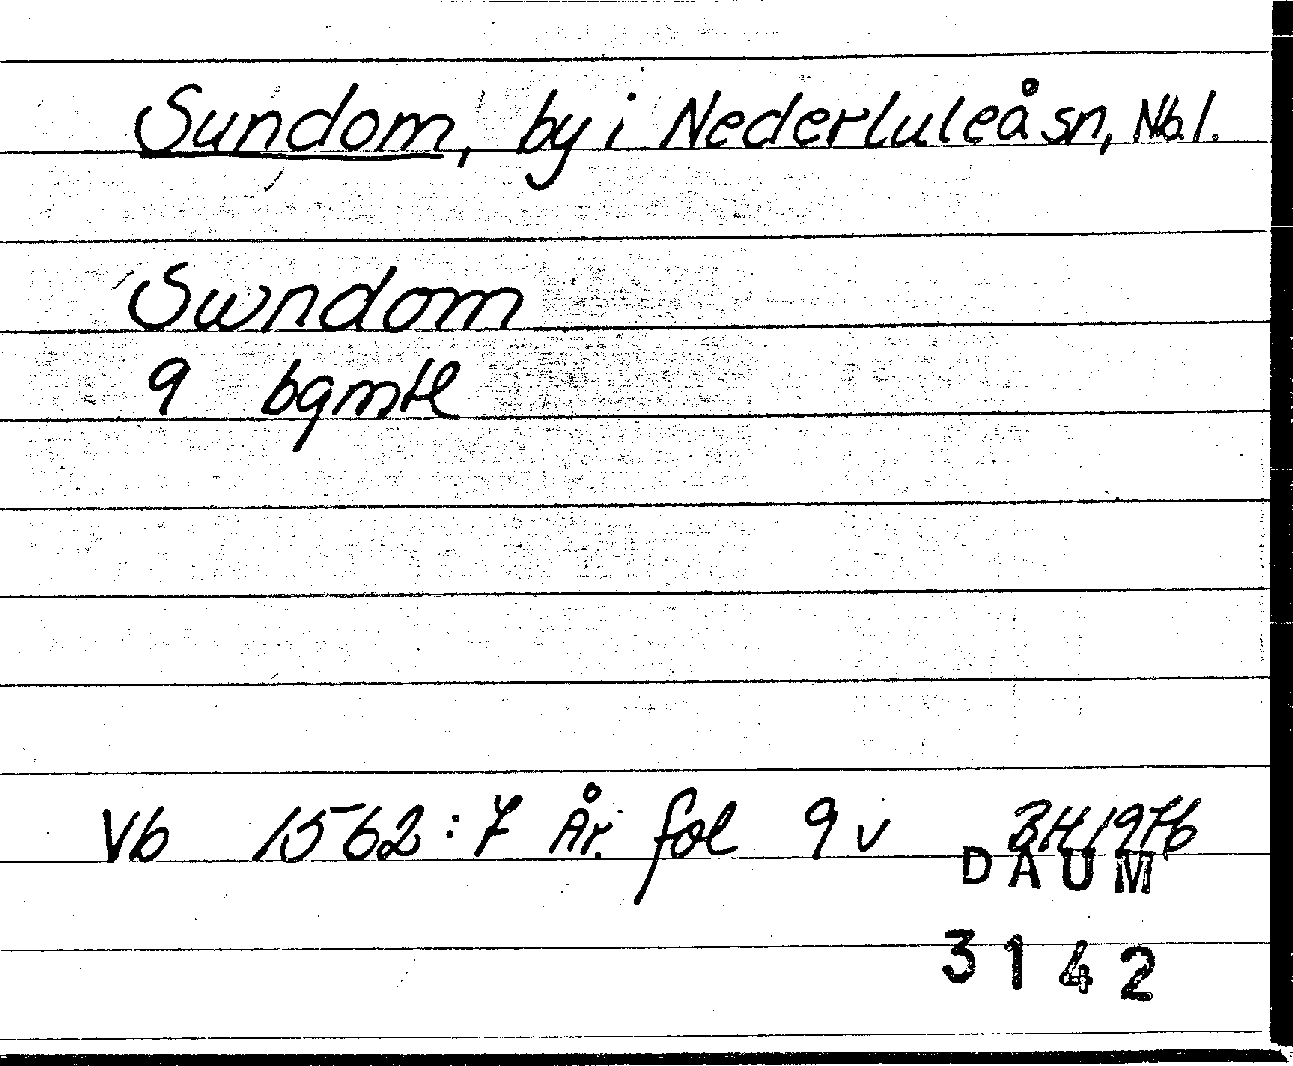 Sundom, by i Nederluleå sn, Nb.l.
Swndom
9 bgmtl
Vb 1562:7 År. fol 9 v BH 1976
DAUM
3142